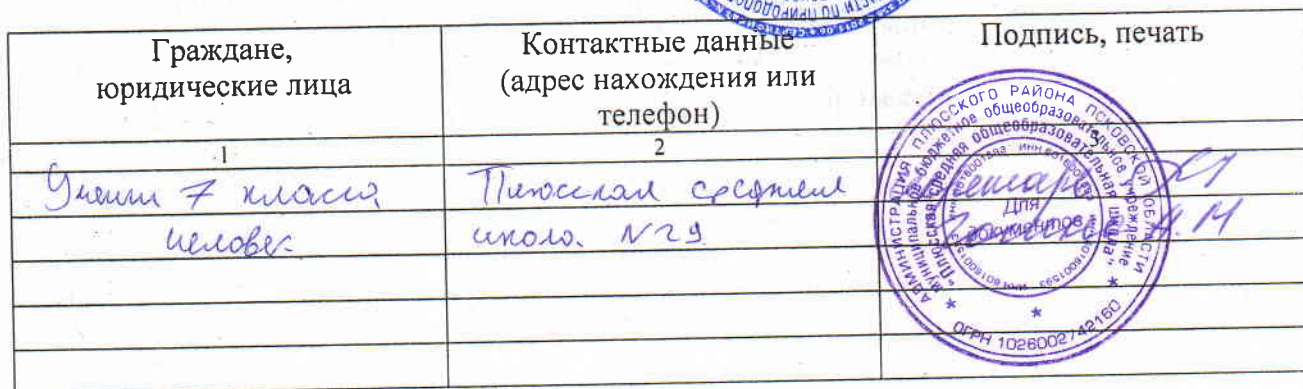 ПО ПРИРОДОПО
Граждане,
юридические лица
Контактные данные
(адрес нахождения или
телефон)
Подпись, печать
1
2
3
7 класса
Плюсская средняя
человек
школа №29
АДМИНИСТРАЦИЯ ПЛЮССКОГО РАЙОНА ПСКОВСКОЙ ОБЛАСТИ
муниципальное бюджетное общеобразовательное учреждение
"Плюсская средняя общеобразовательная школа"
Для
документов
ОГРН 1026002742160